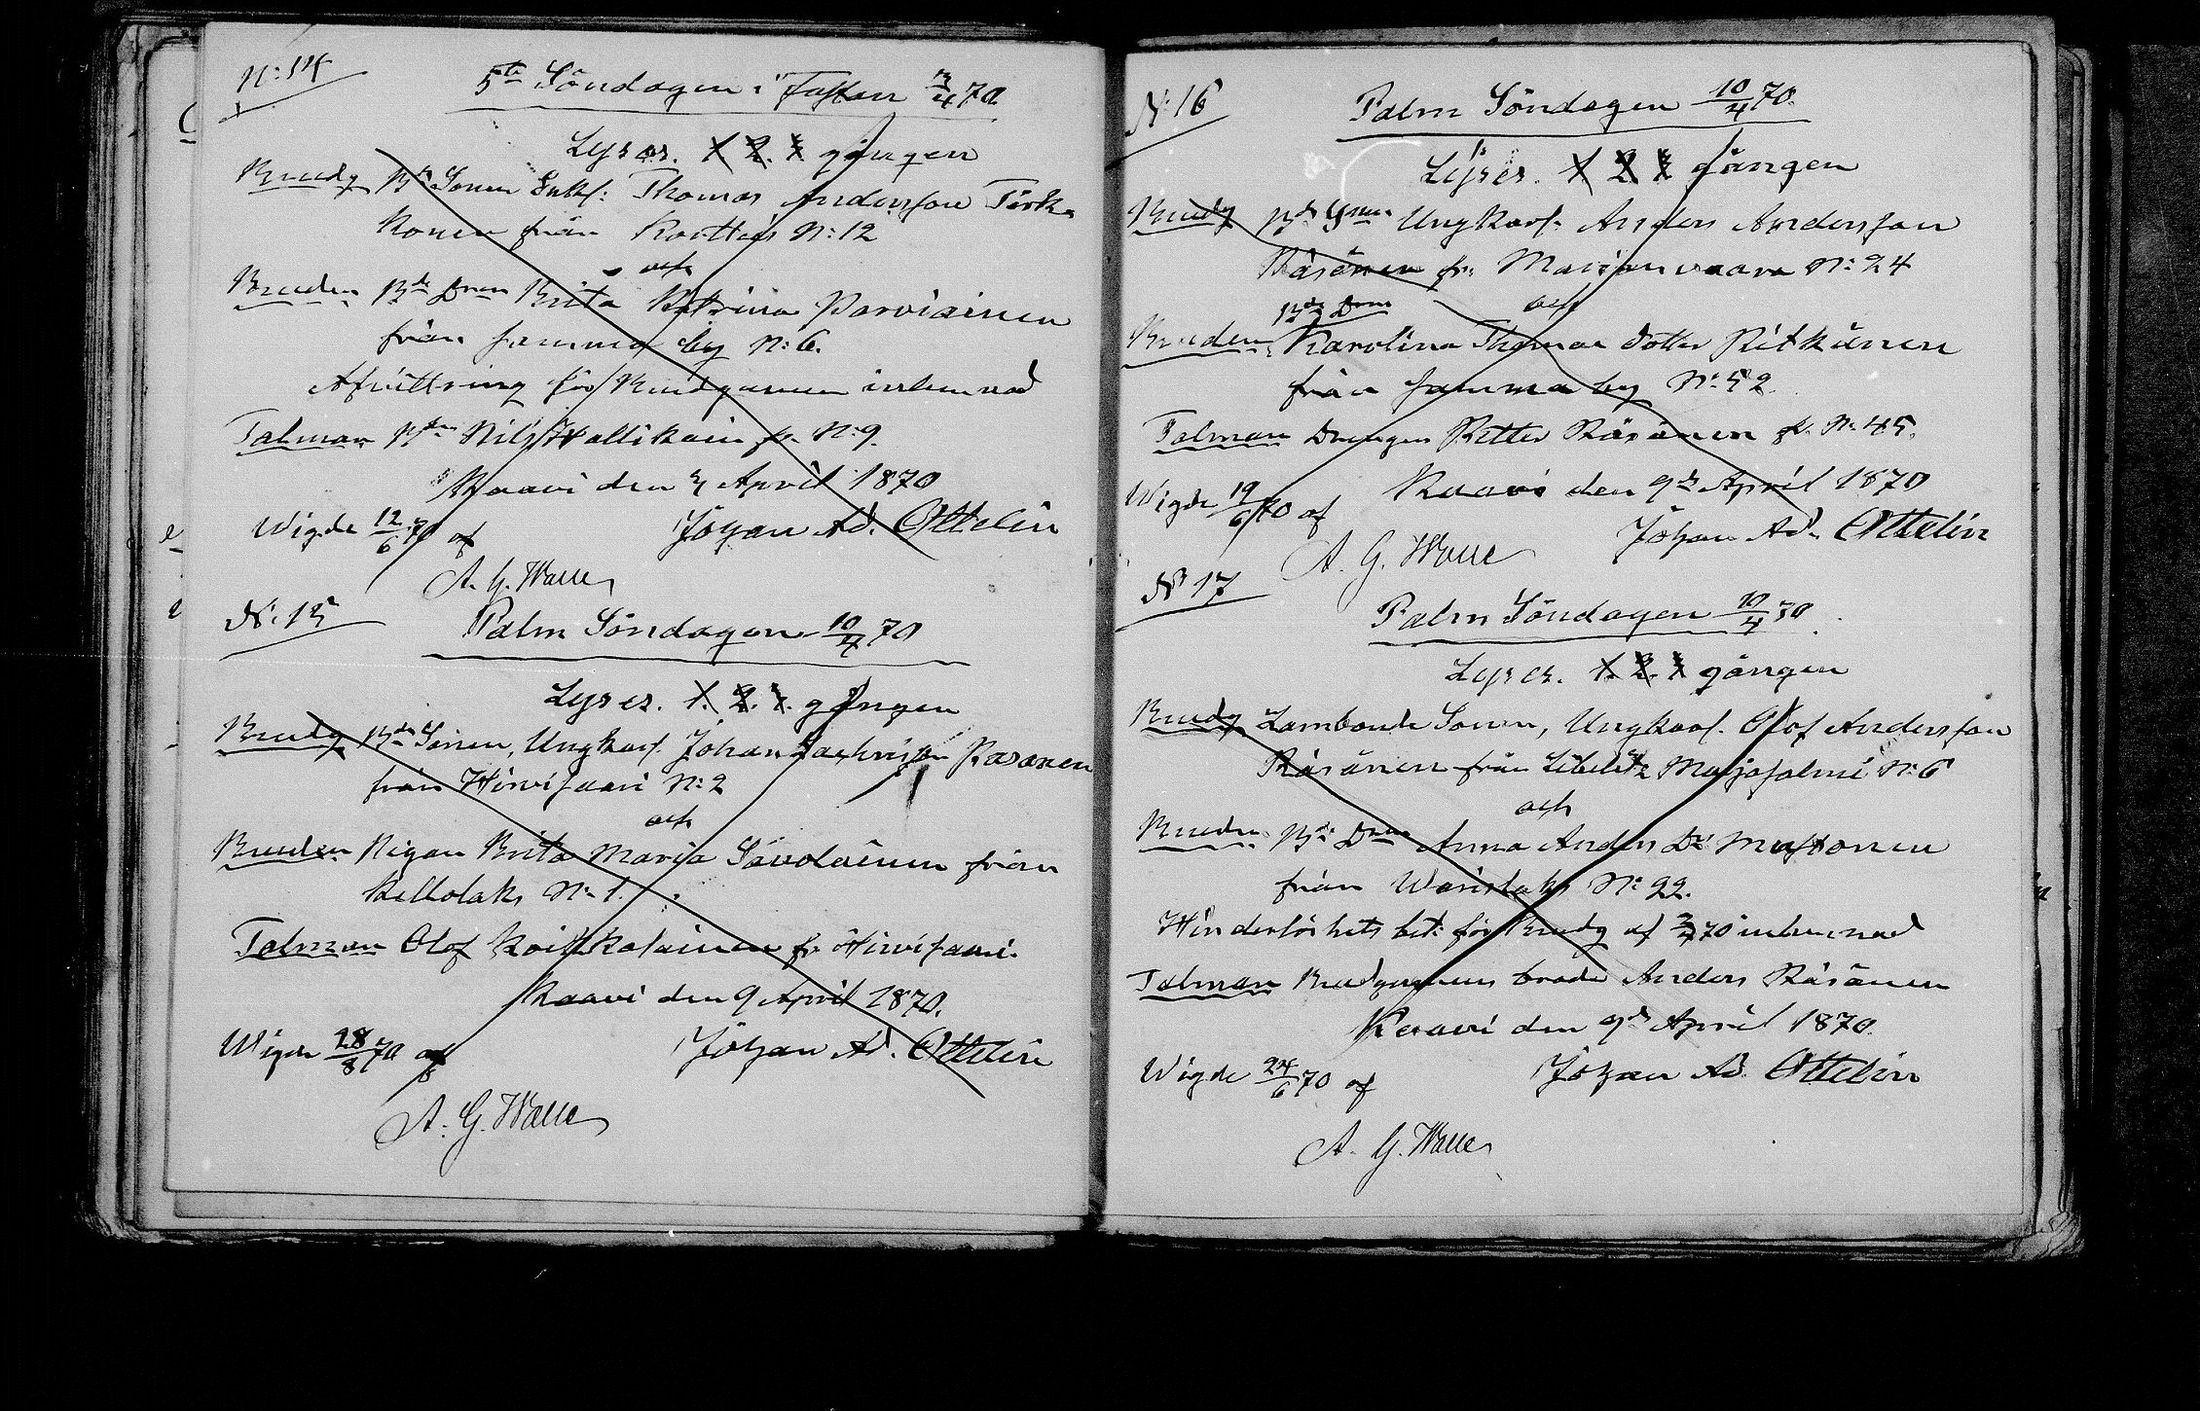 N:14
5te Söndagen i Fastan 3/4 70.
Lyses. 1. 2. 3 gången
Brudg Bde Sonen Enkl: Thomas Andersson Tirk-
konen från Kortteis N:12
och
Bruden Bde Dren Brita Katrina Parviainen
från samma by N:6.
Afvittring för Brudgummen inlemnad
Talman Nils Hallikain fr N:9.
Kaavi den 2 April 1870
Wigde 12/6 70 af
Johan Ad. Ottelin
A. G. Walle
N:15
Palm Söndagen 10/4 70
Lyses. 1. 2. 3. gången
Brudg Bde Sonen, Ungkarl. Johan Zachrisson Räsänen
från Hirvisaari N:2
och
Bruden Pigan Brita Maria Savolainen från
Kellolaks N:1.
Talman Olof Koikkalainen fr Hirvisaari.
Kaavi den 9 April 1870.
Wigde 28/8 70 af
Johan Ad. Ottelin
A. G. Walle
N:16
Palm Söndagen 10/4 70.
Lyses. 1. 2. 3 gången
Brudg Bde Snen Ungkarl. Anders Andersson
Räsänen fr. Marianvaara N:24
och
Bde Dren
Bruden Karolina Thomas dotter Pitkänen
från samma by N:52
Talman Drengen Petter Räsänen fr. N:45.
Kaavi den 9de April 1870
Wigde 19/6 70 af
Johan Ad. Ottelin
A. G. Walle
N:17
Palm Söndagen 10/4 70.
Lyses. 1. 2. 3 gången
Brudg Lambonde Sonen, Ungkarl. Olof Andersson
Räsänen från Libelitz Marjosalmi N:6
och
Bruden Bde Dren Anna Anders Dr Mustonen
från Warislaks N:22.
Hinderlöshets bet: för Brudg af 3/4 70 inlemnad
Talman Brudgummens broder Anders Räsänen
Kaavi den 9de April 1870.
Wigde 24/6 70 af
Johan Ad. Ottelin
A. G. Walle